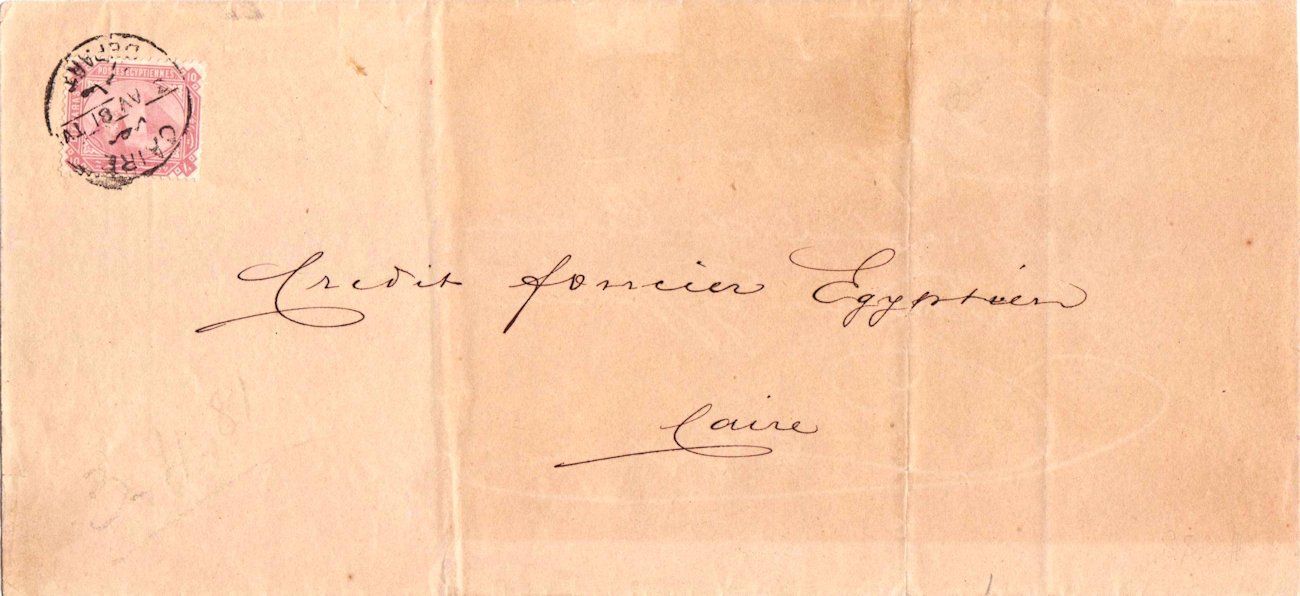 POSTES EGYPTIENNES
10
CAIRE
DEPART
AV 81
Credit foncier Egyptien
Caire